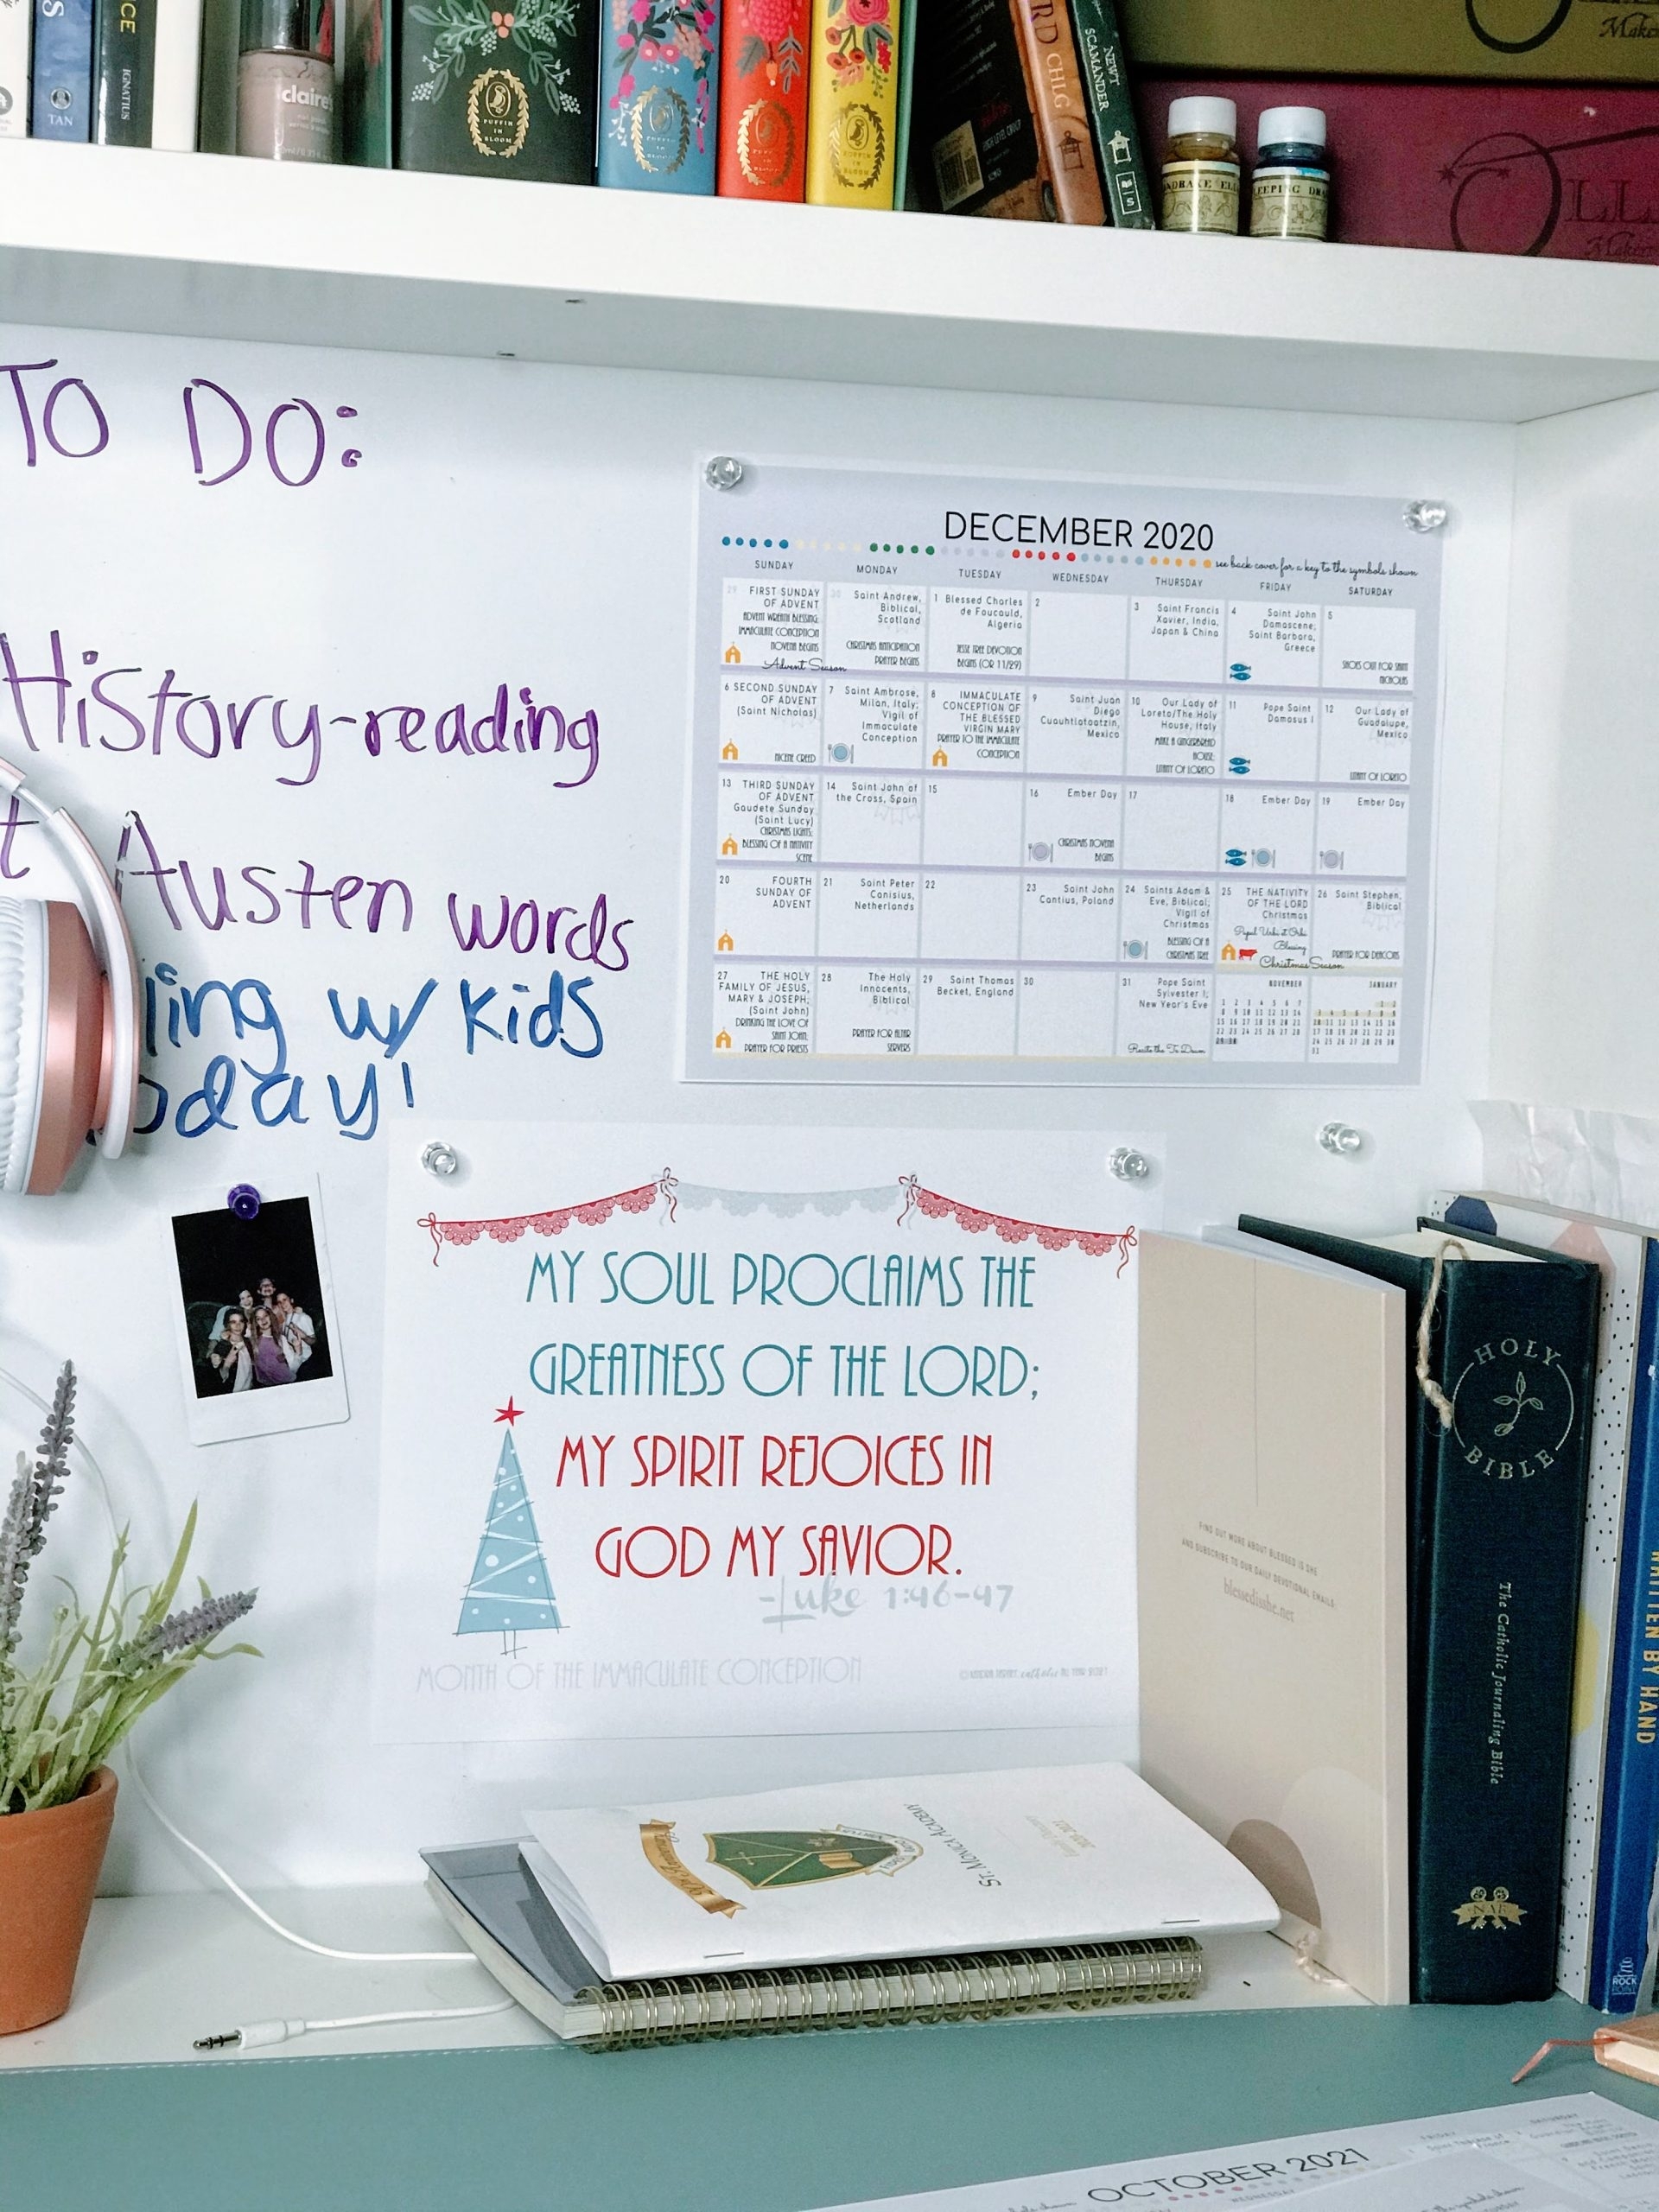 TAN
IGNATIUS
claire's
PUFFIN
IN
BLOOM
PUFFIN
IN
BLOOM
PUFFIN
IN
BLOOM
PUFFIN
IN
BLOOM
NEWT
SCAMANDER
TO DO:
History-reading
Austen words
w/ kids
DECEMBER 2020
see back cover for a key to the symbols shown
SUNDAY MONDAY TUESDAY WEDNESDAY THURSDAY FRIDAY SATURDAY
29 FIRST SUNDAY
OF ADVENT
ADVENT WREATH BLESSING;
IMMACULATE CONCEPTION
NOVENA BEGINS
Advent Season
30 Saint Andrew,
Biblical,
Scotland
CHRISTMAS ANTICIPATION
PRAYER BEGINS
1 Blessed Charles
de Foucauld,
Algeria
JESSE TREE DEVOTION
BEGINS (OR 11/29)
2
3 Saint Francis
Xavier, India,
Japan & China
4 Saint John
Damascene;
Saint Barbara,
Greece
5
SHOES OUT FOR SAINT
NICHOLAS
6 SECOND SUNDAY
OF ADVENT
(Saint Nicholas)
NICENE CREED
7 Saint Ambrose,
Milan, Italy;
Vigil of
Immaculate
Conception
8 IMMACULATE
CONCEPTION OF
THE BLESSED
VIRGIN MARY
PRAYER TO THE IMMACULATE
CONCEPTION
9 Saint Juan
Diego
Cuauhtlatoatzin,
Mexico
10 Our Lady of
Loreto/The Holy
House, Italy
MAKE A GINGERBREAD
HOUSE;
LITANY OF LORETO
11 Pope Saint
Damasus I
12 Our Lady of
Guadalupe,
Mexico
LITANY OF LORETO
13 THIRD SUNDAY
OF ADVENT
Gaudete Sunday
(Saint Lucy)
CHRISTMAS LIGHTS;
BLESSING OF A NATIVITY
SCENE
14 Saint John of
the Cross, Spain
15
16 Ember Day
CHRISTMAS NOVENA
BEGINS
17
18 Ember Day
19 Ember Day
20 FOURTH
SUNDAY OF
ADVENT
21 Saint Peter
Canisius,
Netherlands
22
23 Saint John
Cantius, Poland
24 Saints Adam &
Eve, Biblical;
Vigil of
Christmas
BLESSING OF A
CHRISTMAS TREE
25 THE NATIVITY
OF THE LORD
Christmas
Papal Urbi et Orbi
Blessing
Christmas Season
26 Saint Stephen,
Biblical
PRAYER FOR DEACONS
27 THE HOLY
FAMILY OF JESUS,
MARY & JOSEPH;
(Saint John)
DRINKING THE LOVE OF
SAINT JOHN;
PRAYER FOR PRIESTS
28 The Holy
Innocents,
Biblical
PRAYER FOR ALTAR
SERVERS
29 Saint Thomas
Becket, England
30
31 Pope Saint
Sylvester I;
New Year's Eve
Recite the Te Deum
NOVEMBER
JANUARY
MY SOUL PROCLAIMS THE
GREATNESS OF THE LORD;
MY SPIRIT REJOICES IN
GOD MY SAVIOR.
-Luke 1:46-47
MONTH OF THE IMMACULATE CONCEPTION
FIND OUT MORE ABOUT BLESSED IS SHE
AND SUBSCRIBE TO OUR DAILY DEVOTIONAL EMAILS:
blessedisshe.net
HOLY
BIBLE
The Catholic Journaling Bible
NAB
WRITTEN BY HAND
ROCK
POINT
ST. MONICA ACADEMY
OCTOBER 2021